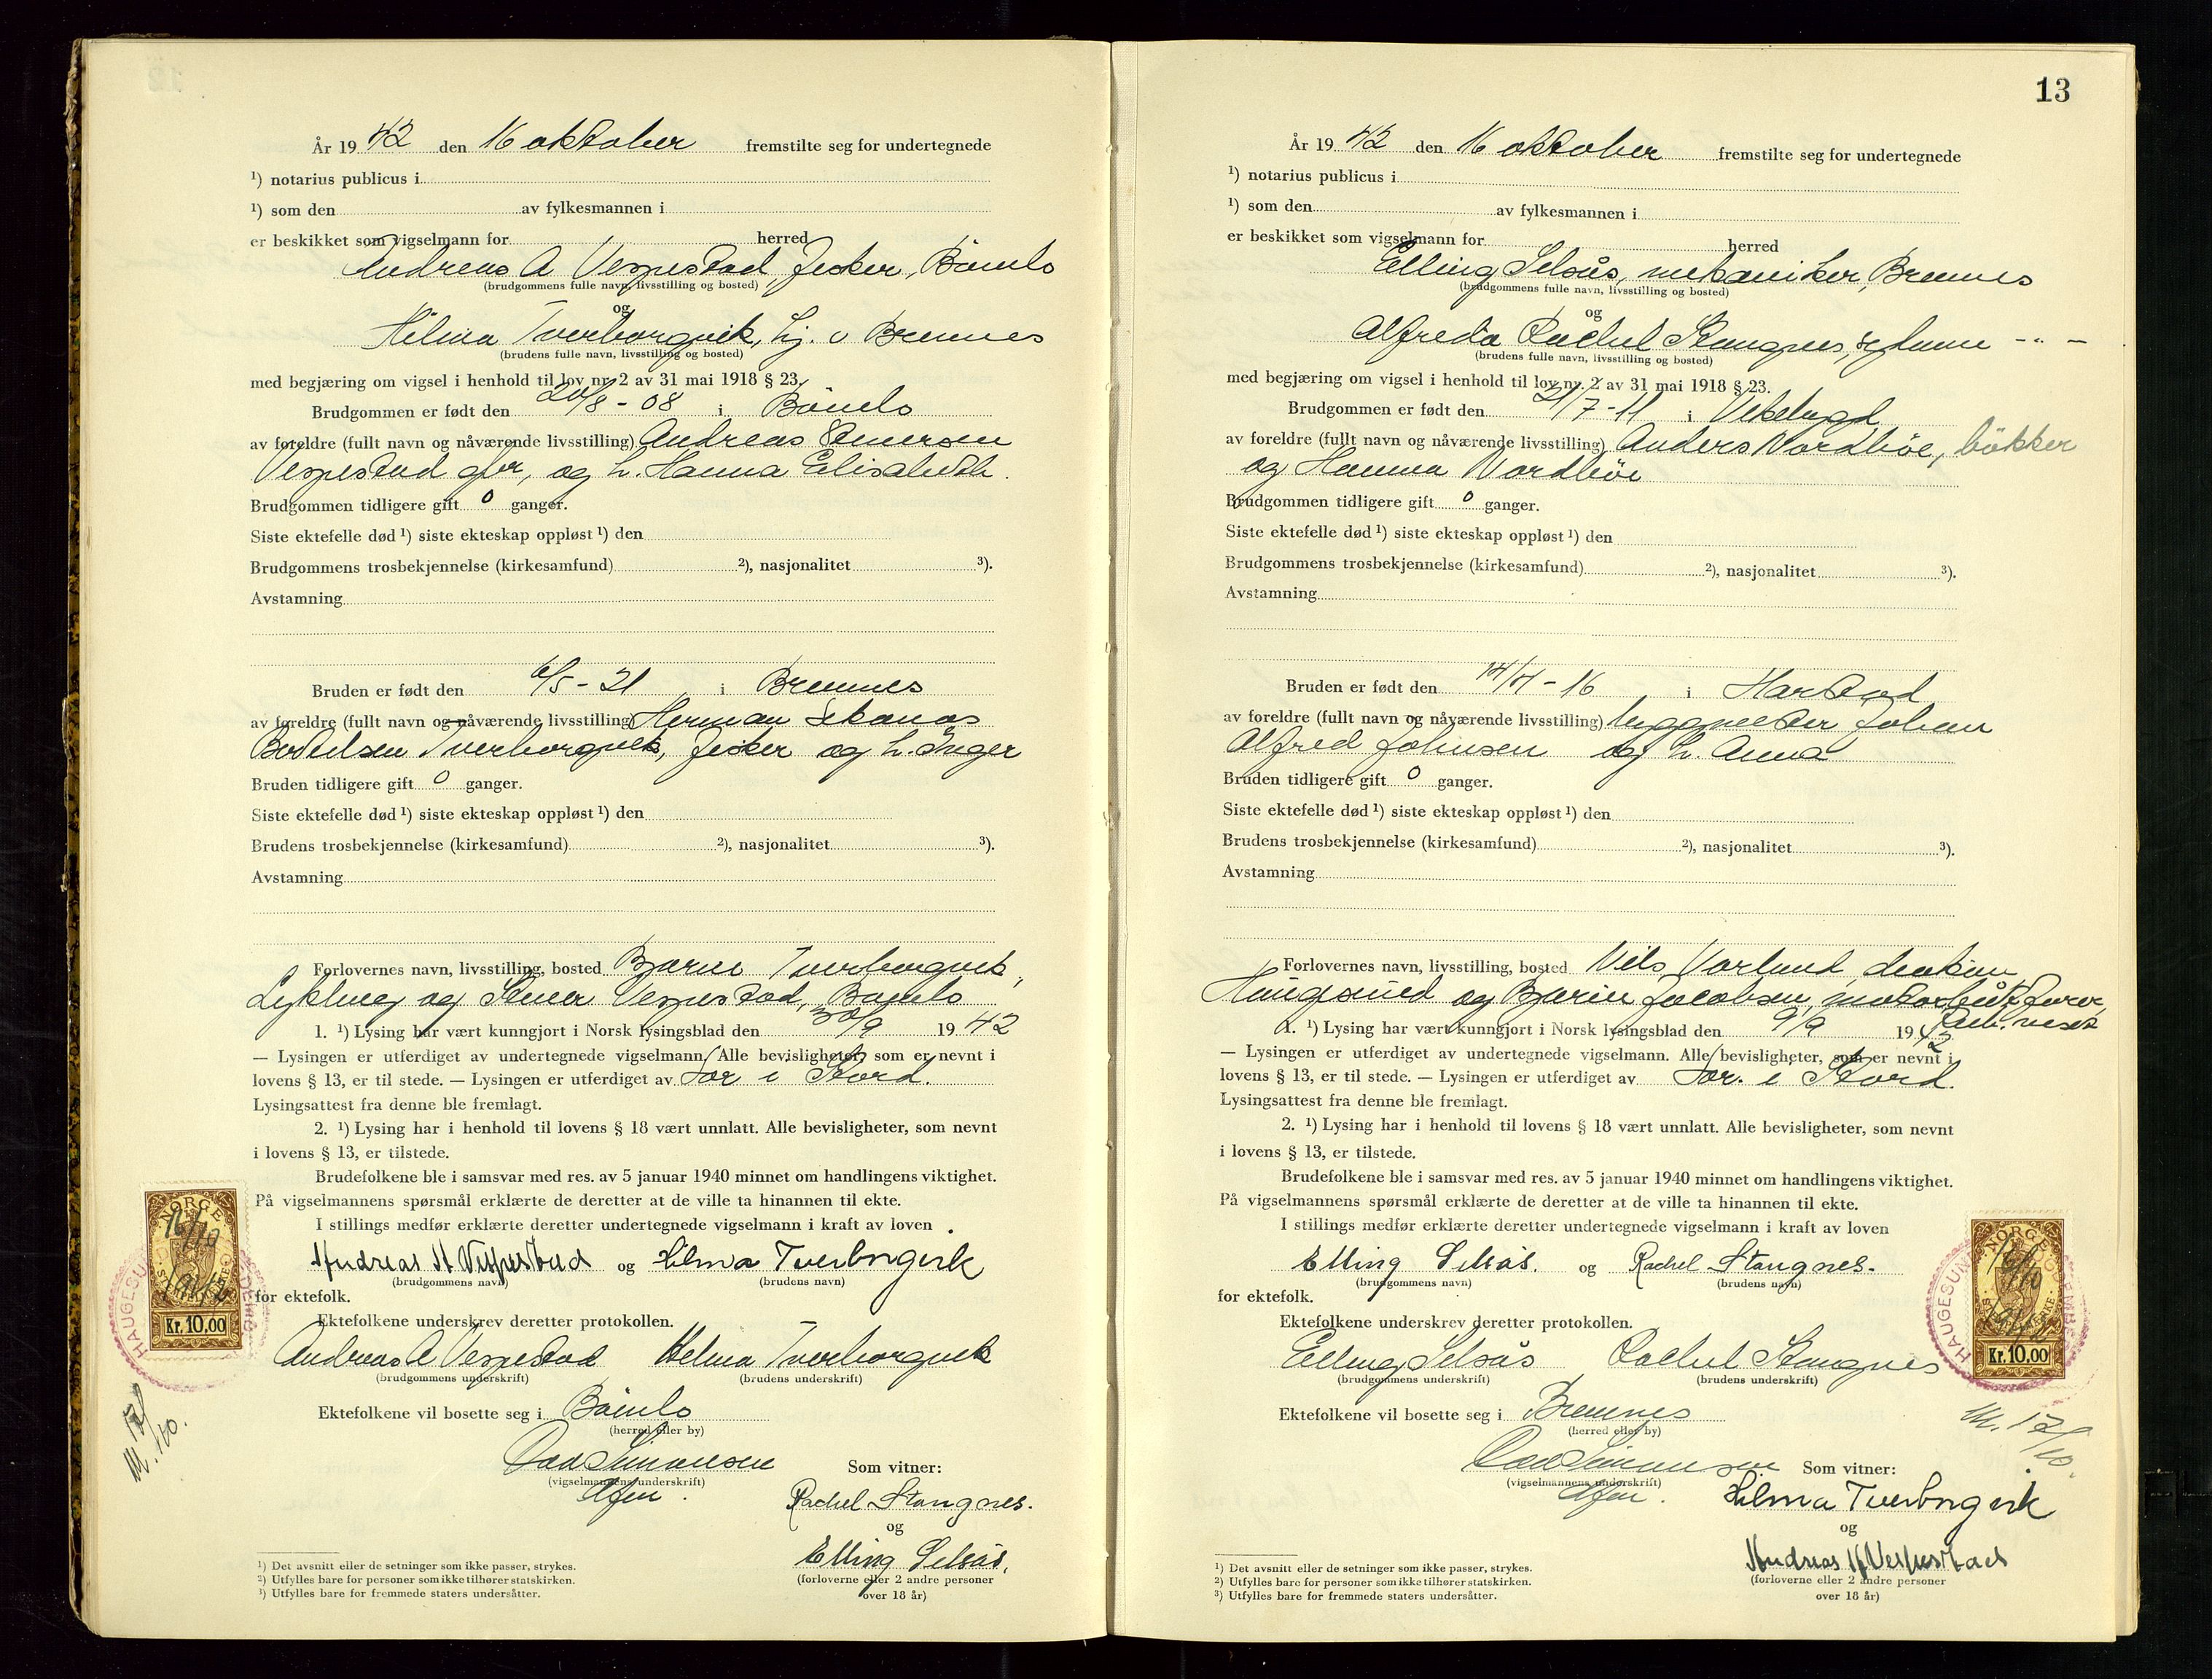 År 19 42 den 16 oktober fremstilte seg for undertegnede
¹) notarius publicus i
¹) som den av fylkesmannen i
er beskikket som vigselmann for herred
Andreas A Vespestad, fisker, Bömlo
(brudgommens fulle navn, livsstilling og bosted)
og
Hilma Tverborgvik, hj. v Bremnes
(brudens fulle navn, livsstilling og bosted)
med begjæring om vigsel i henhold til lov nr. 2 av 31 mai 1918 § 23.
Brudgommen er født den 20/8 - 08 i Bömlo
av foreldre (fullt navn og nåværende livsstilling) Andreas
Vespestad gbr, og h. Hanna Elisabeth.
Brudgommen tidligere gift 0 ganger.
Siste ektefelle død ¹) siste ekteskap oppløst ¹) den
Brudgommens trosbekjennelse (kirkesamfund) ²), nasjonalitet ³).
Avstamning
Bruden er født den 6/5 - 21 i Bremnes
av foreldre (fullt navn og nåværende livsstilling) Herman
Tverborgvik, fisker og h. Inger
Bruden tidligere gift 0 ganger.
Siste ektefelle død ¹) siste ekteskap oppløst ¹) den
Brudens trosbekjennelse (kirkesamfund) ²), nasjonalitet ³).
Avstamning
Forlovernes navn, livsstilling, bosted Bjarne Tverborgvik,
Lykling og Vespestad, Bömlo
1. ¹) Lysing har vært kunngjort i Norsk lysingsblad den 30/9 19 42
— Lysingen er utferdiget av undertegnede vigselmann. Alle bevisligheter, som er nevnt i
lovens § 13, er til stede. — Lysingen er utferdiget av Sor i Stord.
Lysingsattest fra denne ble fremlagt.
2. ¹) Lysing har i henhold til lovens § 18 vært unnlatt. Alle bevisligheter, som nevnt
i lovens § 13, er tilstede.
Brudefolkene ble i samsvar med res. av 5 januar 1940 minnet om handlingens viktighet.
På vigselmannens spørsmål erklærte de deretter at de ville ta hinannen til ekte.
I stillings medfør erklærte deretter undertegnede vigselmann i kraft av loven
Andreas A Vespestad og Hilma Tverborgvik
(brudgommens navn) (brudens navn)
for ektefolk.
Ektefolkene underskrev deretter protokollen.
Andreas A Vespestad Helma Tverborgvik
(brudgommens underskrift) (brudens underskrift)
Ektefolkene vil bosette seg i Bömlo
(herred eller by)
Simonsen
(vigselmannens underskrift)
Som vitner:
Rachel Stangnes.
og
Elling Selsås.
(forloverne eller 2 andre personer
over 18 år)
NORGE
16/10
1942
Kr. 10.00
HAUGESUND
¹) Det avsnitt eller de setninger som ikke passer, strykes.
²) Utfylles bare for personer som ikke tilhører statskirken.
³) Utfylles bare for fremmede staters undersåtter.
13
År 19 42 den 16 oktober fremstilte seg for undertegnede
¹) notarius publicus i
¹) som den av fylkesmannen i
er beskikket som vigselmann for herred
Elling Selsås, mekaniker, Bremnes
(brudgommens fulle navn, livsstilling og bosted)
og
Alfreda Rachel Stangnes, - " -
(brudens fulle navn, livsstilling og bosted)
med begjæring om vigsel i henhold til lov nr. 2 av 31 mai 1918 § 23.
Brudgommen er født den 21/7 - 11 i Vikebygd
av foreldre (fullt navn og nåværende livsstilling) Anders Nordböe, bökker
og Hanna Nordböe
Brudgommen tidligere gift 0 ganger.
Siste ektefelle død ¹) siste ekteskap oppløst ¹) den
Brudgommens trosbekjennelse (kirkesamfund) ²), nasjonalitet ³).
Avstamning
Bruden er født den 14/4 - 16 i Harstad
av foreldre (fullt navn og nåværende livsstilling) byggmester Johan
Alfred Johnsen og h. Anna
Bruden tidligere gift 0 ganger.
Siste ektefelle død ¹) siste ekteskap oppløst ¹) den
Brudens trosbekjennelse (kirkesamfund) ²), nasjonalitet ³).
Avstamning
Forlovernes navn, livsstilling, bosted Nils Vorland, diakon,
Haugesund og Bjarne Jacobsen,
1. ¹) Lysing har vært kunngjort i Norsk lysingsblad den 9/9 19 42
— Lysingen er utferdiget av undertegnede vigselmann. Alle bevisligheter, som er nevnt i
lovens § 13, er til stede. — Lysingen er utferdiget av Sor. i Stord.
Lysingsattest fra denne ble fremlagt.
2. ¹) Lysing har i henhold til lovens § 18 vært unnlatt. Alle bevisligheter, som nevnt
i lovens § 13, er tilstede.
Brudefolkene ble i samsvar med res. av 5 januar 1940 minnet om handlingens viktighet.
På vigselmannens spørsmål erklærte de deretter at de ville ta hinannen til ekte.
I stillings medfør erklærte deretter undertegnede vigselmann i kraft av loven
Elling Selsås. og Rachel Stangnes.
(brudgommens navn) (brudens navn)
for ektefolk.
Ektefolkene underskrev deretter protokollen.
Elling Selsås Rachel Stangnes
(brudgommens underskrift) (brudens underskrift)
Ektefolkene vil bosette seg i Bremnes
(herred eller by)
Simonsen
(vigselmannens underskrift)
Som vitner:
Hilma Tverborgvik
og
Andreas A Vespestad
(forloverne eller 2 andre personer
over 18 år)
NORGE
16/10
1942
Kr. 10.00
HAUGESUND
¹) Det avsnitt eller de setninger som ikke passer, strykes.
²) Utfylles bare for personer som ikke tilhører statskirken.
³) Utfylles bare for fremmede staters undersåtter.